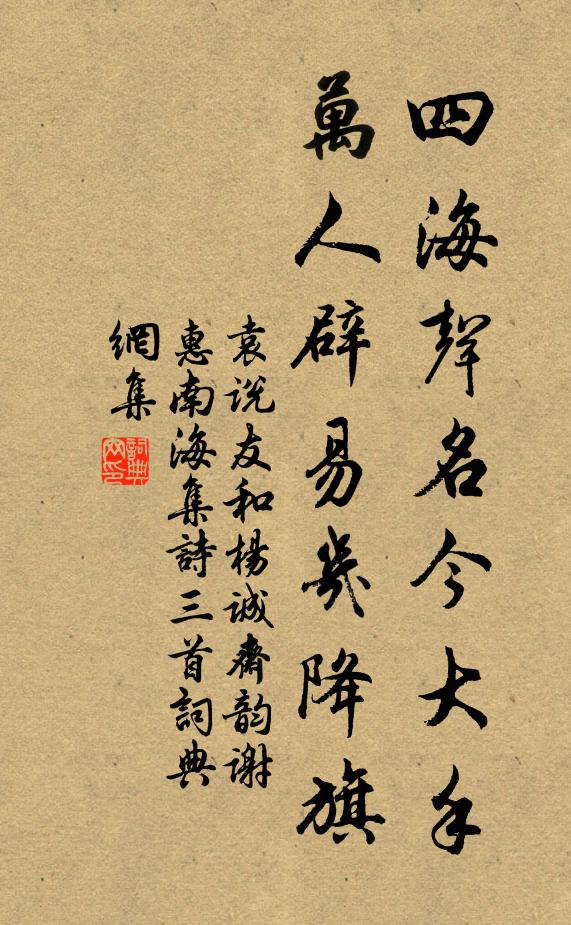 四海聲名今大手
萬人辟易幾降旗
袁説友和楊誠齋韵謝
惠南海集詩三首詞典
網集
詞典網印